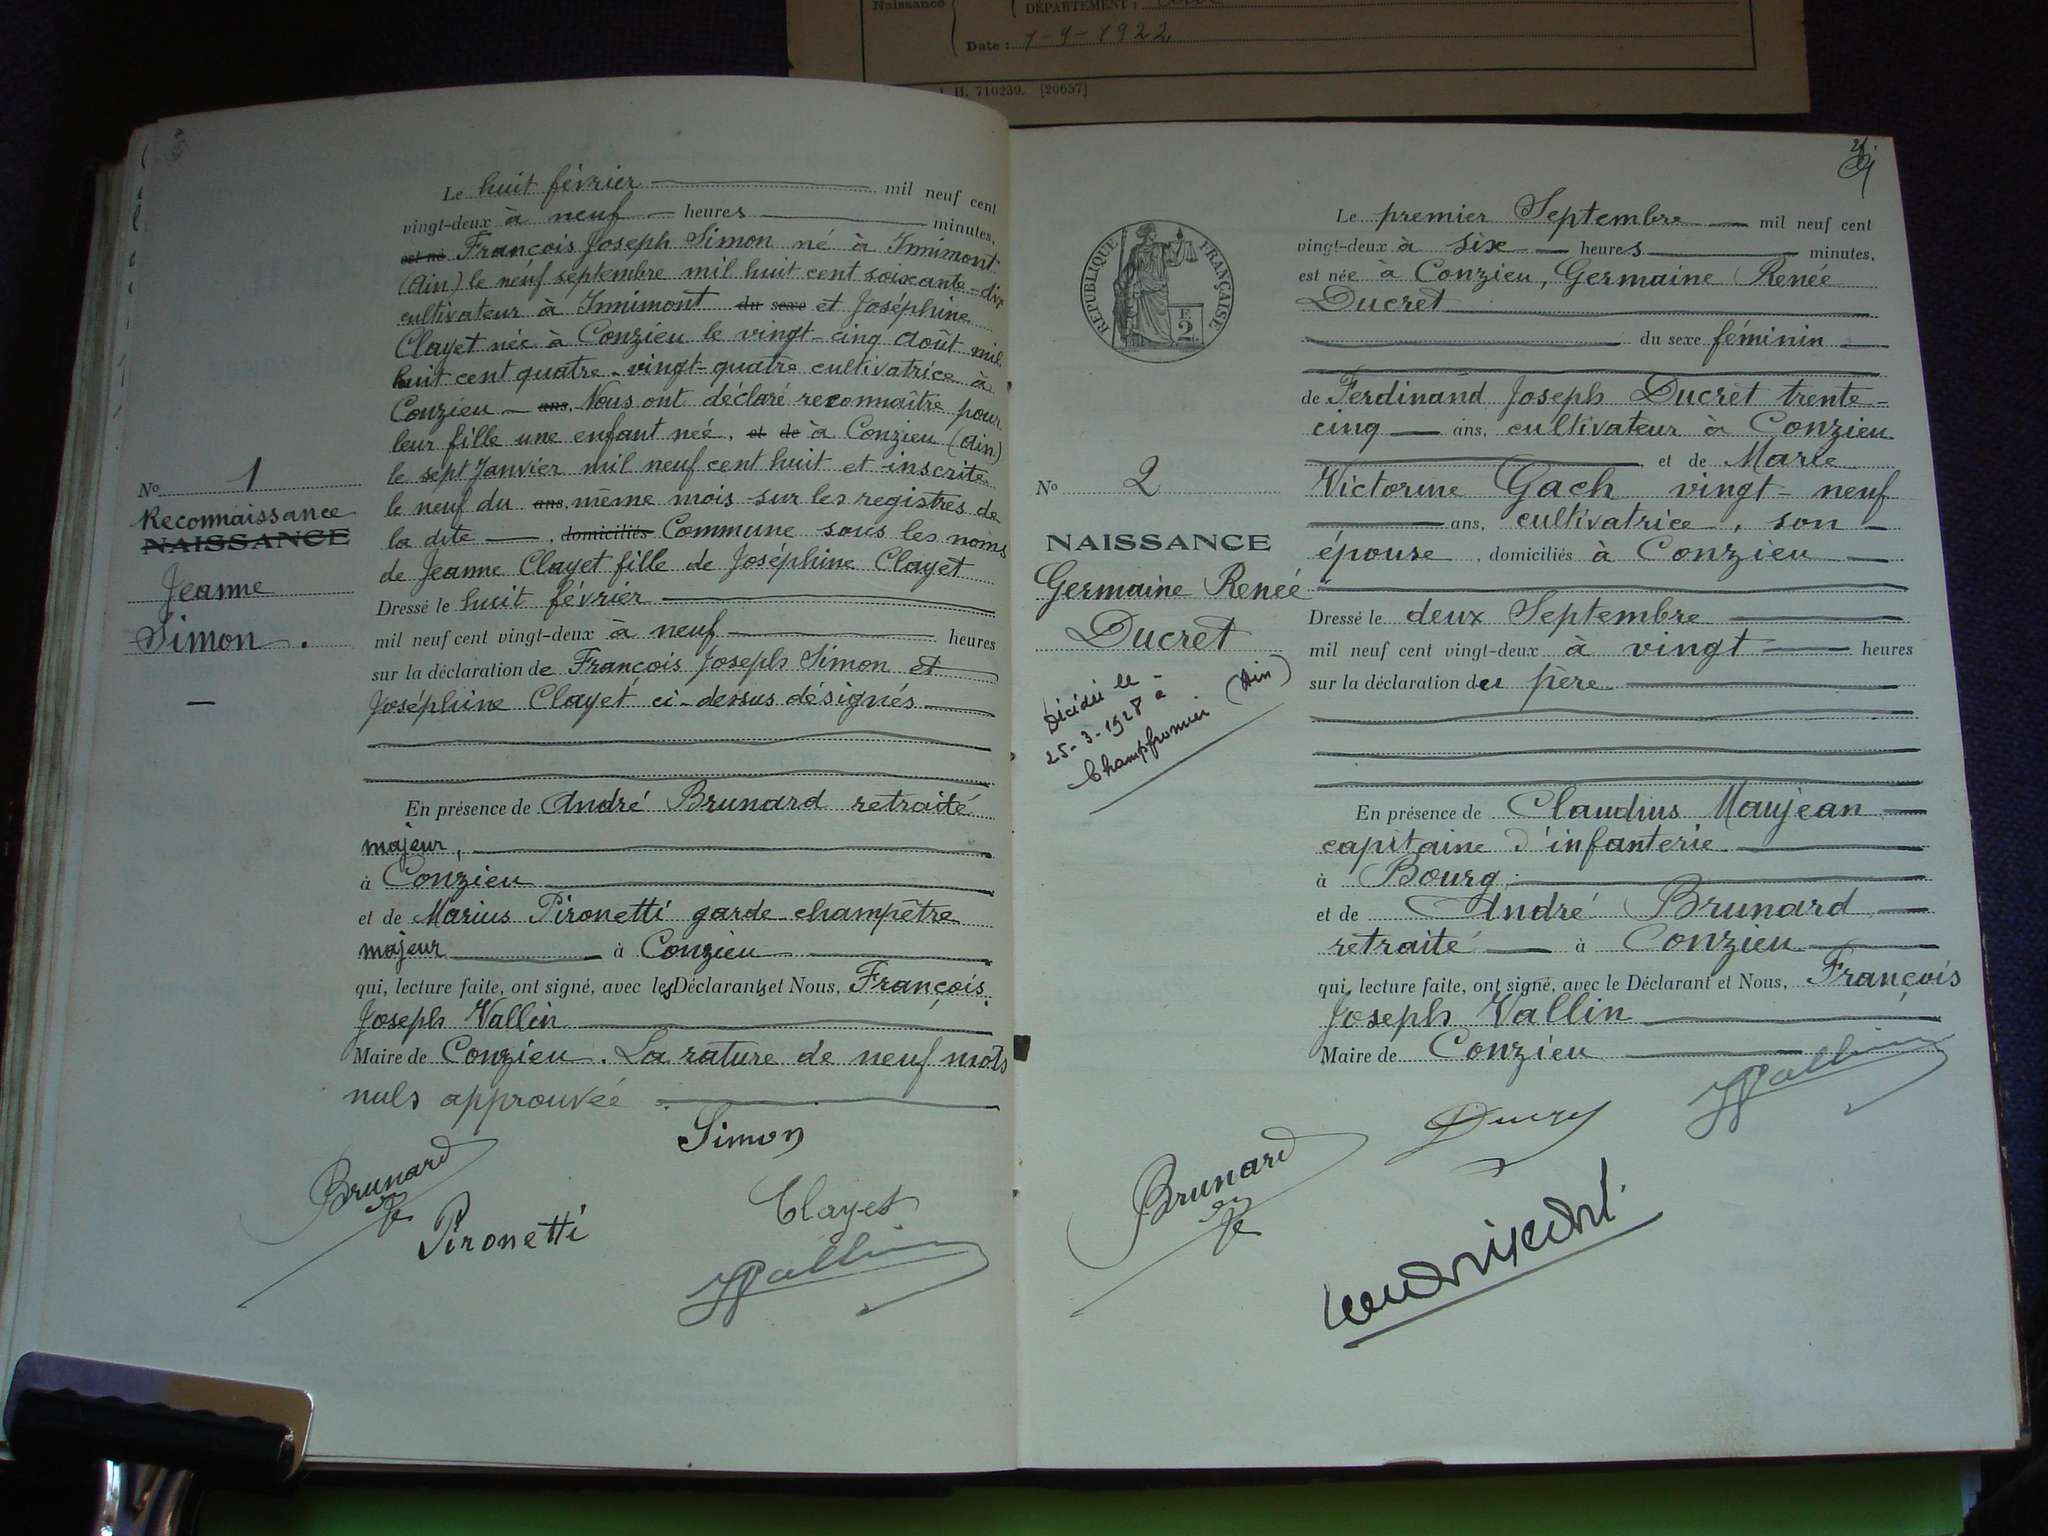 Naissance
DÉPARTEMENT :
Date : 1-9-1922
H. 710239. [20657]
Le huit février mil neuf cent
vingt-deux à neuf heures minutes,
est né François Joseph Simon né à Innimont
(Ain) le neuf septembre mil huit cent soixante-dix
cultivateur à Innimont du sexe et Joséphine
Clayet née à Conzieu le vingt-cinq Août mil
huit cent quatre-vingt-quatre cultivatrice à
Conzieu ans, Nous ont déclaré reconnaître pour
leur fille une enfant née, et de à Conzieu (Ain)
le sept Janvier mil neuf cent huit et inscrite
le neuf du ans, même mois sur les registres de
la dite , domiciliés Commune sous les noms
de Jeanne Clayet fille de Joséphine Clayet
Dressé le huit février
mil neuf cent vingt-deux à neuf heures
sur la déclaration de François Joseph Simon et
Joséphine Clayet ci-dessus désignés
En présence de André Brunard retraité
majeur,
à Conzieu
et de Marius Pironetti garde-champêtre
majeur à Conzieu
qui, lecture faite, ont signé, avec les Déclarants et Nous, François
Joseph Vallin
Maire de Conzieu. La rature de neuf mots
nuls approuvée
No 1
Reconnaissance
NAISSANCE
Jeanne
Simon.
Simon
Brunard
Pironetti
Clayet
Vallin
RÉPUBLIQUE FRANÇAISE
F
2
Le premier Septembre mil neuf cent
vingt-deux à six heures minutes,
est née à Conzieu, Germaine Renée
Ducret
du sexe féminin
de Ferdinand Joseph Ducret trente-
cinq ans, cultivateur à Conzieu
et de Marie
Victorine Gach vingt-neuf
ans, cultivatrice, son
épouse, domiciliés à Conzieu
Dressé le deux Septembre
mil neuf cent vingt-deux à vingt heures
sur la déclaration du père
En présence de Claudius Maujean
capitaine d'infanterie
à Bourg
et de André Brunard
retraité à Conzieu
qui, lecture faite, ont signé, avec le Déclarant et Nous, François
Joseph Vallin
Maire de Conzieu
No 2
NAISSANCE
Germaine Renée
Ducret
Décédée le
25-3-1928 à
Champfromier (Ain)
Brunard
Ducret
Vallin